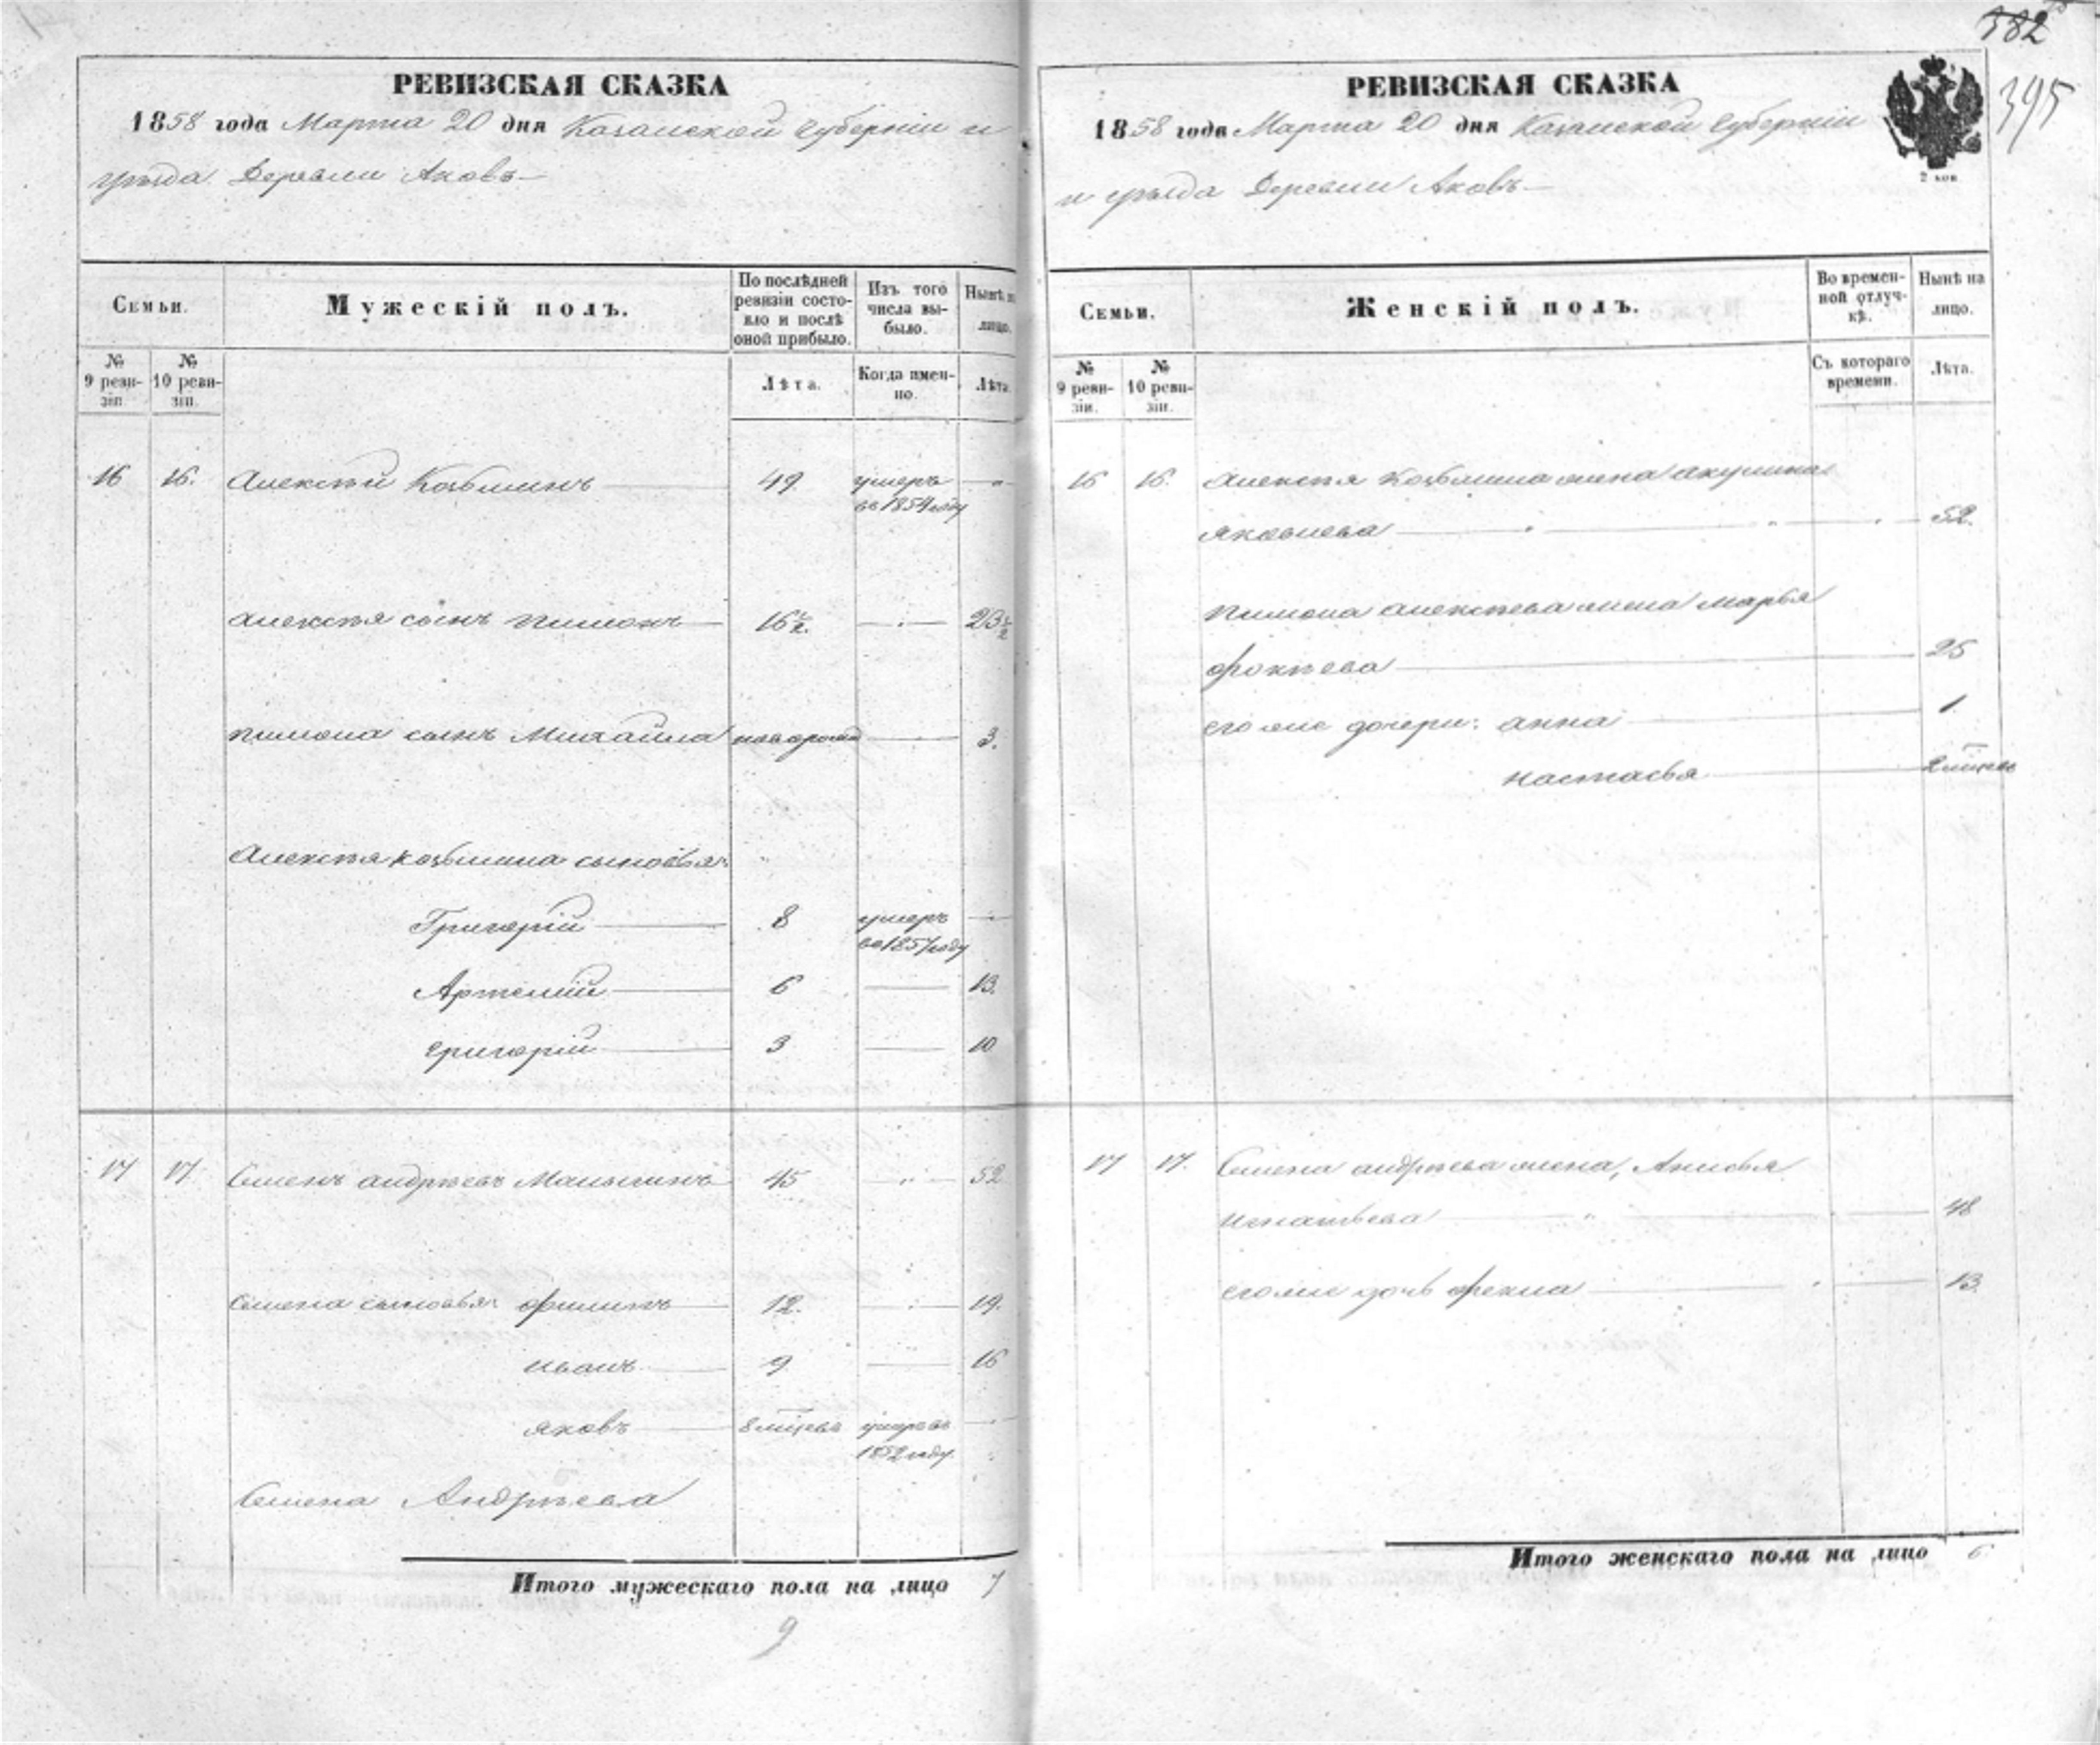 382
395
РЕВИЗСКАЯ СКАЗКА
1858 года Марта 20 дня Казанской Губерніи и
уѣзда Деревни Аковъ
Семьи.
Мужескій полъ.
По послѣдней ревизіи состояло и послѣ оной прибыло.
Изъ того числа выбыло.
Нынѣ на лицо.
№ 9 ревизіи.
№ 10 ревизіи.
Лѣта.
Когда именно.
Лѣта.
16 16. Алексѣй Козьминъ 49. умеръ
въ 1854 году
Алексѣя сынъ Пимонъ 16½. 23½
Пимона сынъ Михайла новорожд 3.
Алексѣя Козьмина сыновья:
Григорій 8 умеръ
въ 1857 году
Артемій 6 13.
Григорій 3 10
17 17. Семенъ Андрѣевъ 45 52
Семена сыновья: Филипъ 12. 19.
Иванъ 9. 16
Яковъ 8 мѣсцевъ умеръ въ
1852 году.
Семена Андрѣева
Итого мужескаго пола на лицо 7
9
РЕВИЗСКАЯ СКАЗКА
1858 года Марта 20 дня Казанской Губерніи
2 коп
и уѣзда Деревни Аковъ
Семьи.
Женскій полъ.
Во временной отлучкѣ.
Нынѣ на лицо.
№ 9 ревизіи.
№ 10 ревизіи.
Съ котораго времени.
Лѣта.
16 16. Алексѣя Козьмина жена Акулина
Яковлева 52.
Пимона Алексѣева жена Марья
Фокѣева 25
его же дочери: Анна 1.
Настасья 2 мѣсцевъ
17 17. Семена Андрѣева жена, Анисья
Игнатьева 48
его же дочь Фекла 13.
Итого женскаго пола на лицо 6.